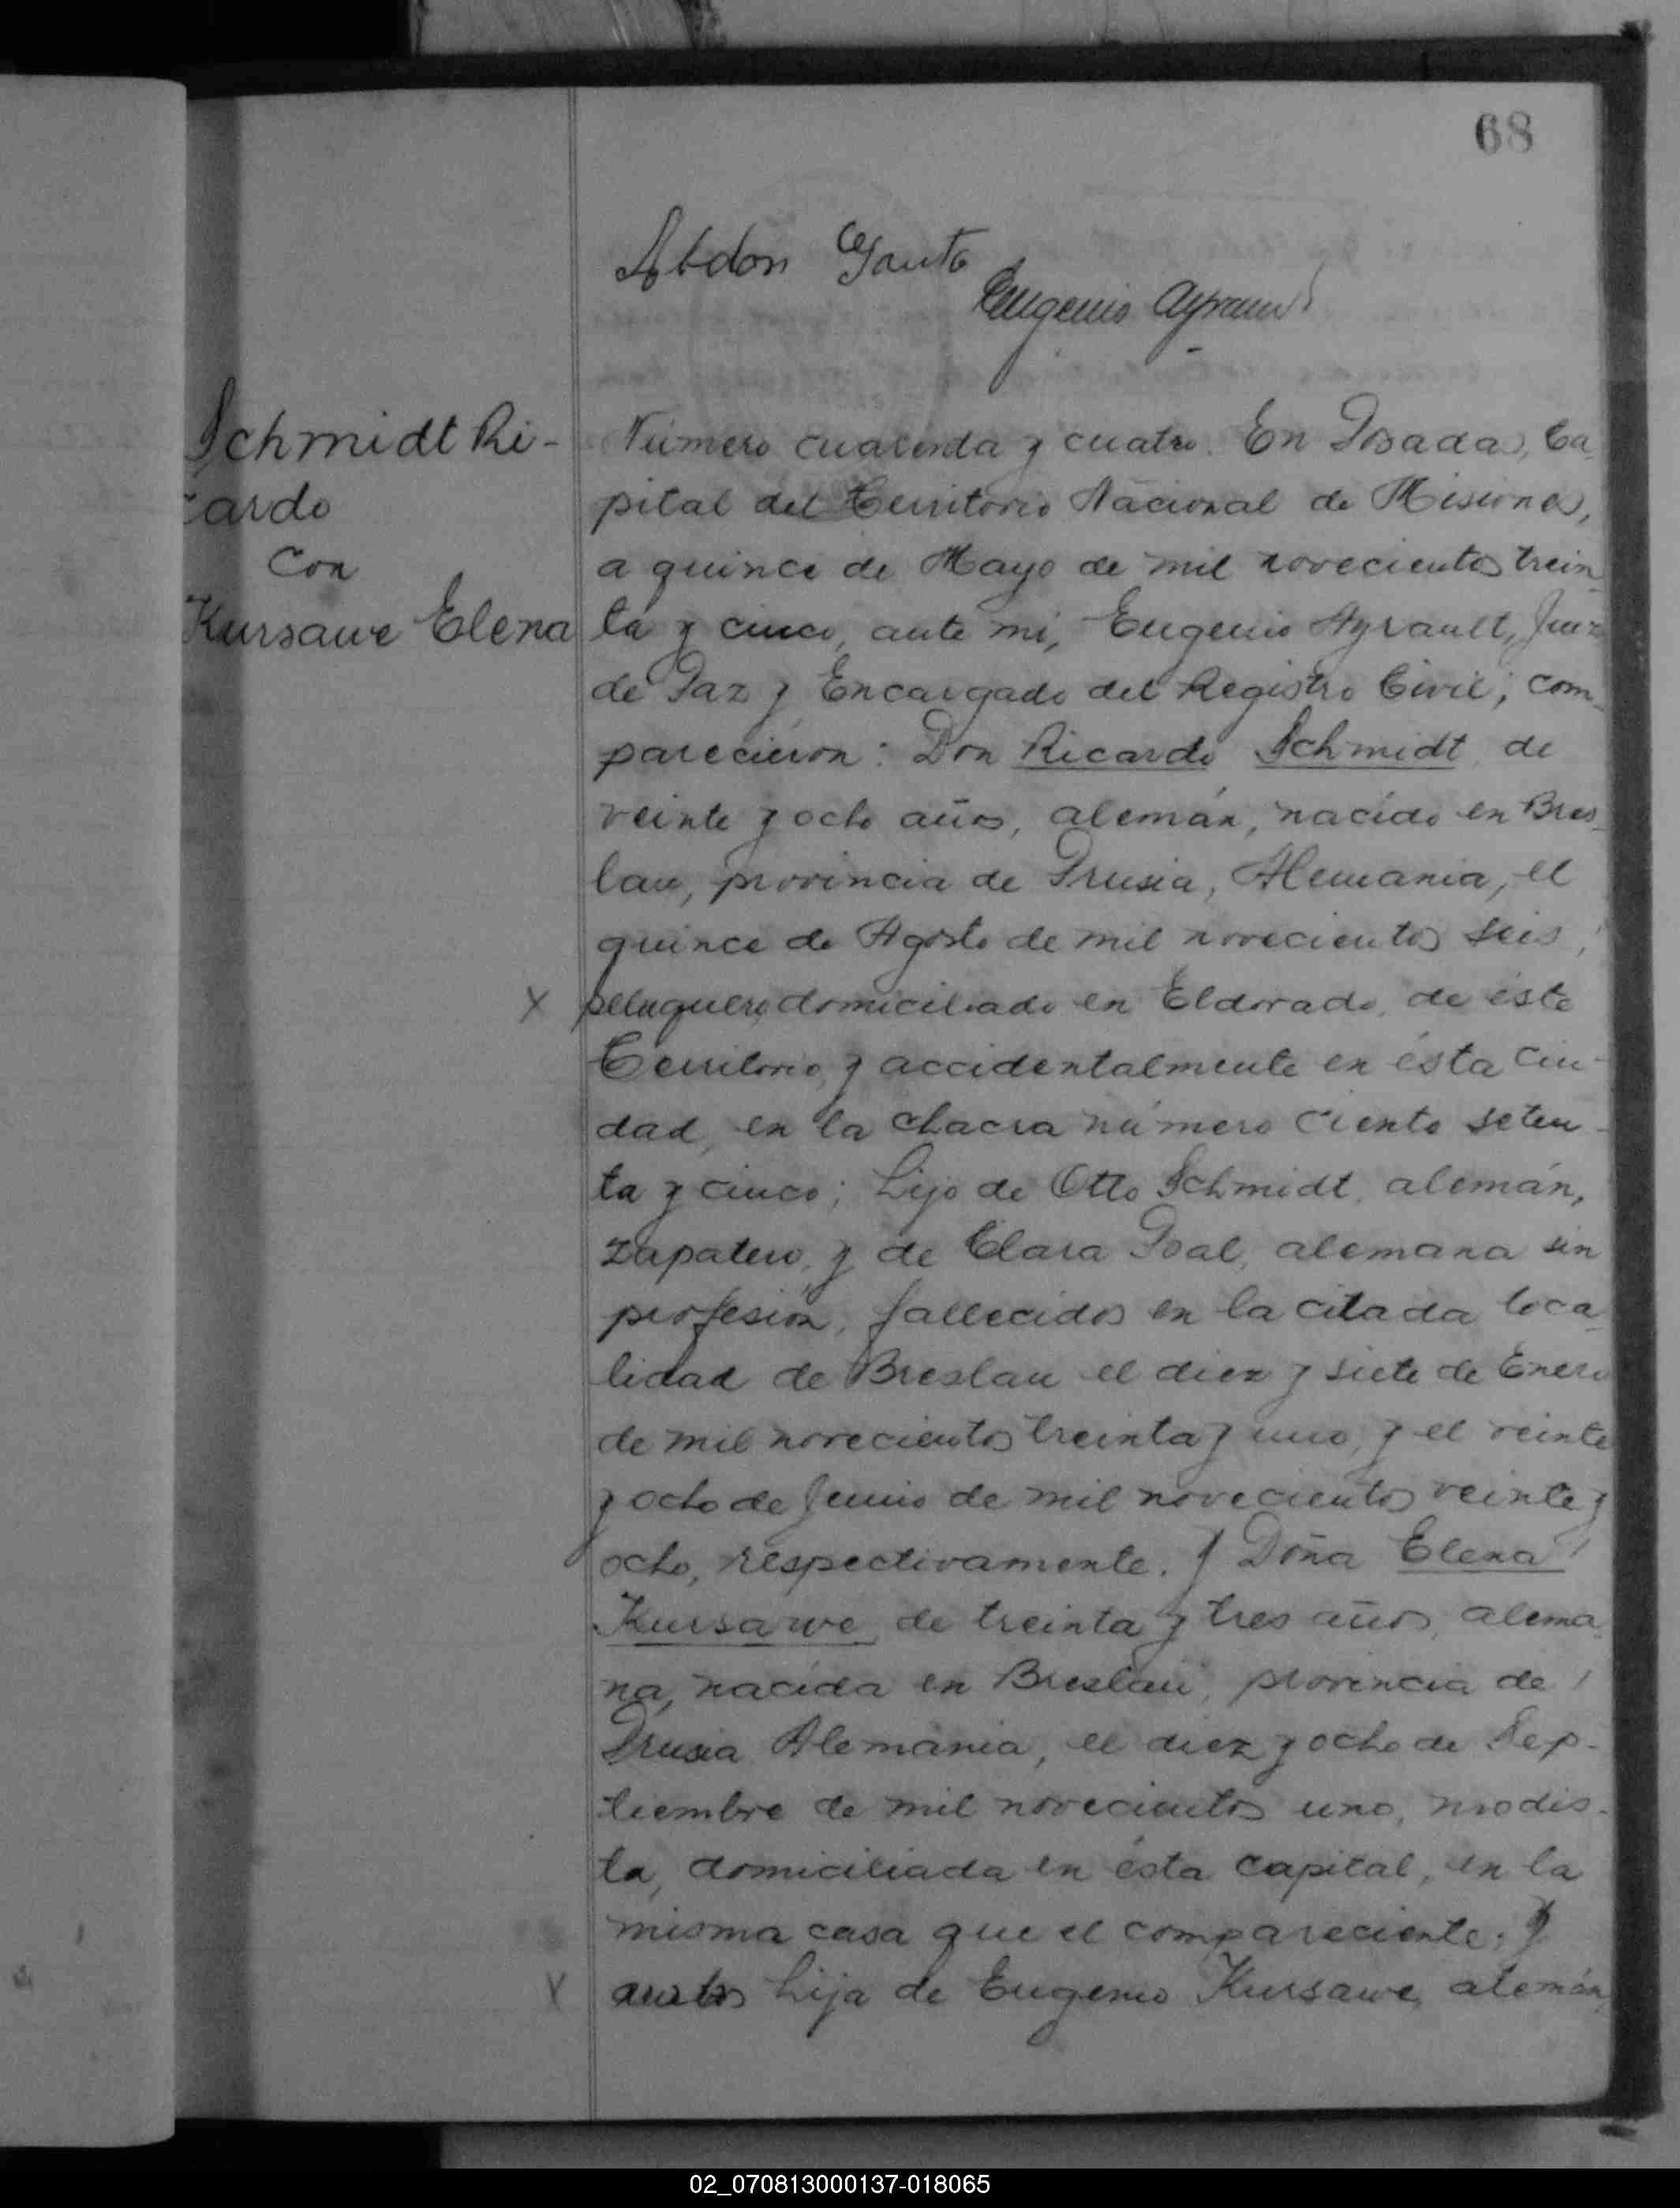 68
Abdon Gauto
Eugenio Ayrault
Schmidt Ri-
cardo
Con
Kursawe Elena
Número cuarenta y cuatro. En Posadas, Ca-
pital del Territorio Nacional de Misiones,
a quince de Mayo de mil novecientos trein-
ta y cinco, ante mi, Eugenio Ayrault, Juez
de Paz y Encargado del Registro Civil; com-
parecieron: Don Ricardo Schmidt, de
veinte y ocho años, alemán, nacido en Bres-
lau, provincia de Prusia, Alemania, el
quince de Agosto de mil novecientos seis,
X peluquero, domiciliado en Eldorado, de éste
Territorio, y accidentalmente en ésta ciu-
dad, en la chacra número ciento seten-
ta y cinco; hijo de Otto Schmidt, alemán,
zapatero, y de Clara Poal, alemana sin
profesión, fallecidos en la citada loca-
lidad de Breslau el diez y siete de Enero
de mil novecientos treinta y uno, y el veinte
y ocho de Junio de mil novecientos veinte y
ocho, respectivamente. Y Doña Elena
Kursawe, de treinta y tres años, alema-
na, nacida en Breslau, provincia de
Prusia Alemania, el diez y ocho de Sep-
tiembre de mil novecientos uno, modis-
ta, domiciliada en ésta capital, en la
misma casa que el compareciente; y
X hija de Eugenio Kursawe, alemán,
02_070813000137-018065